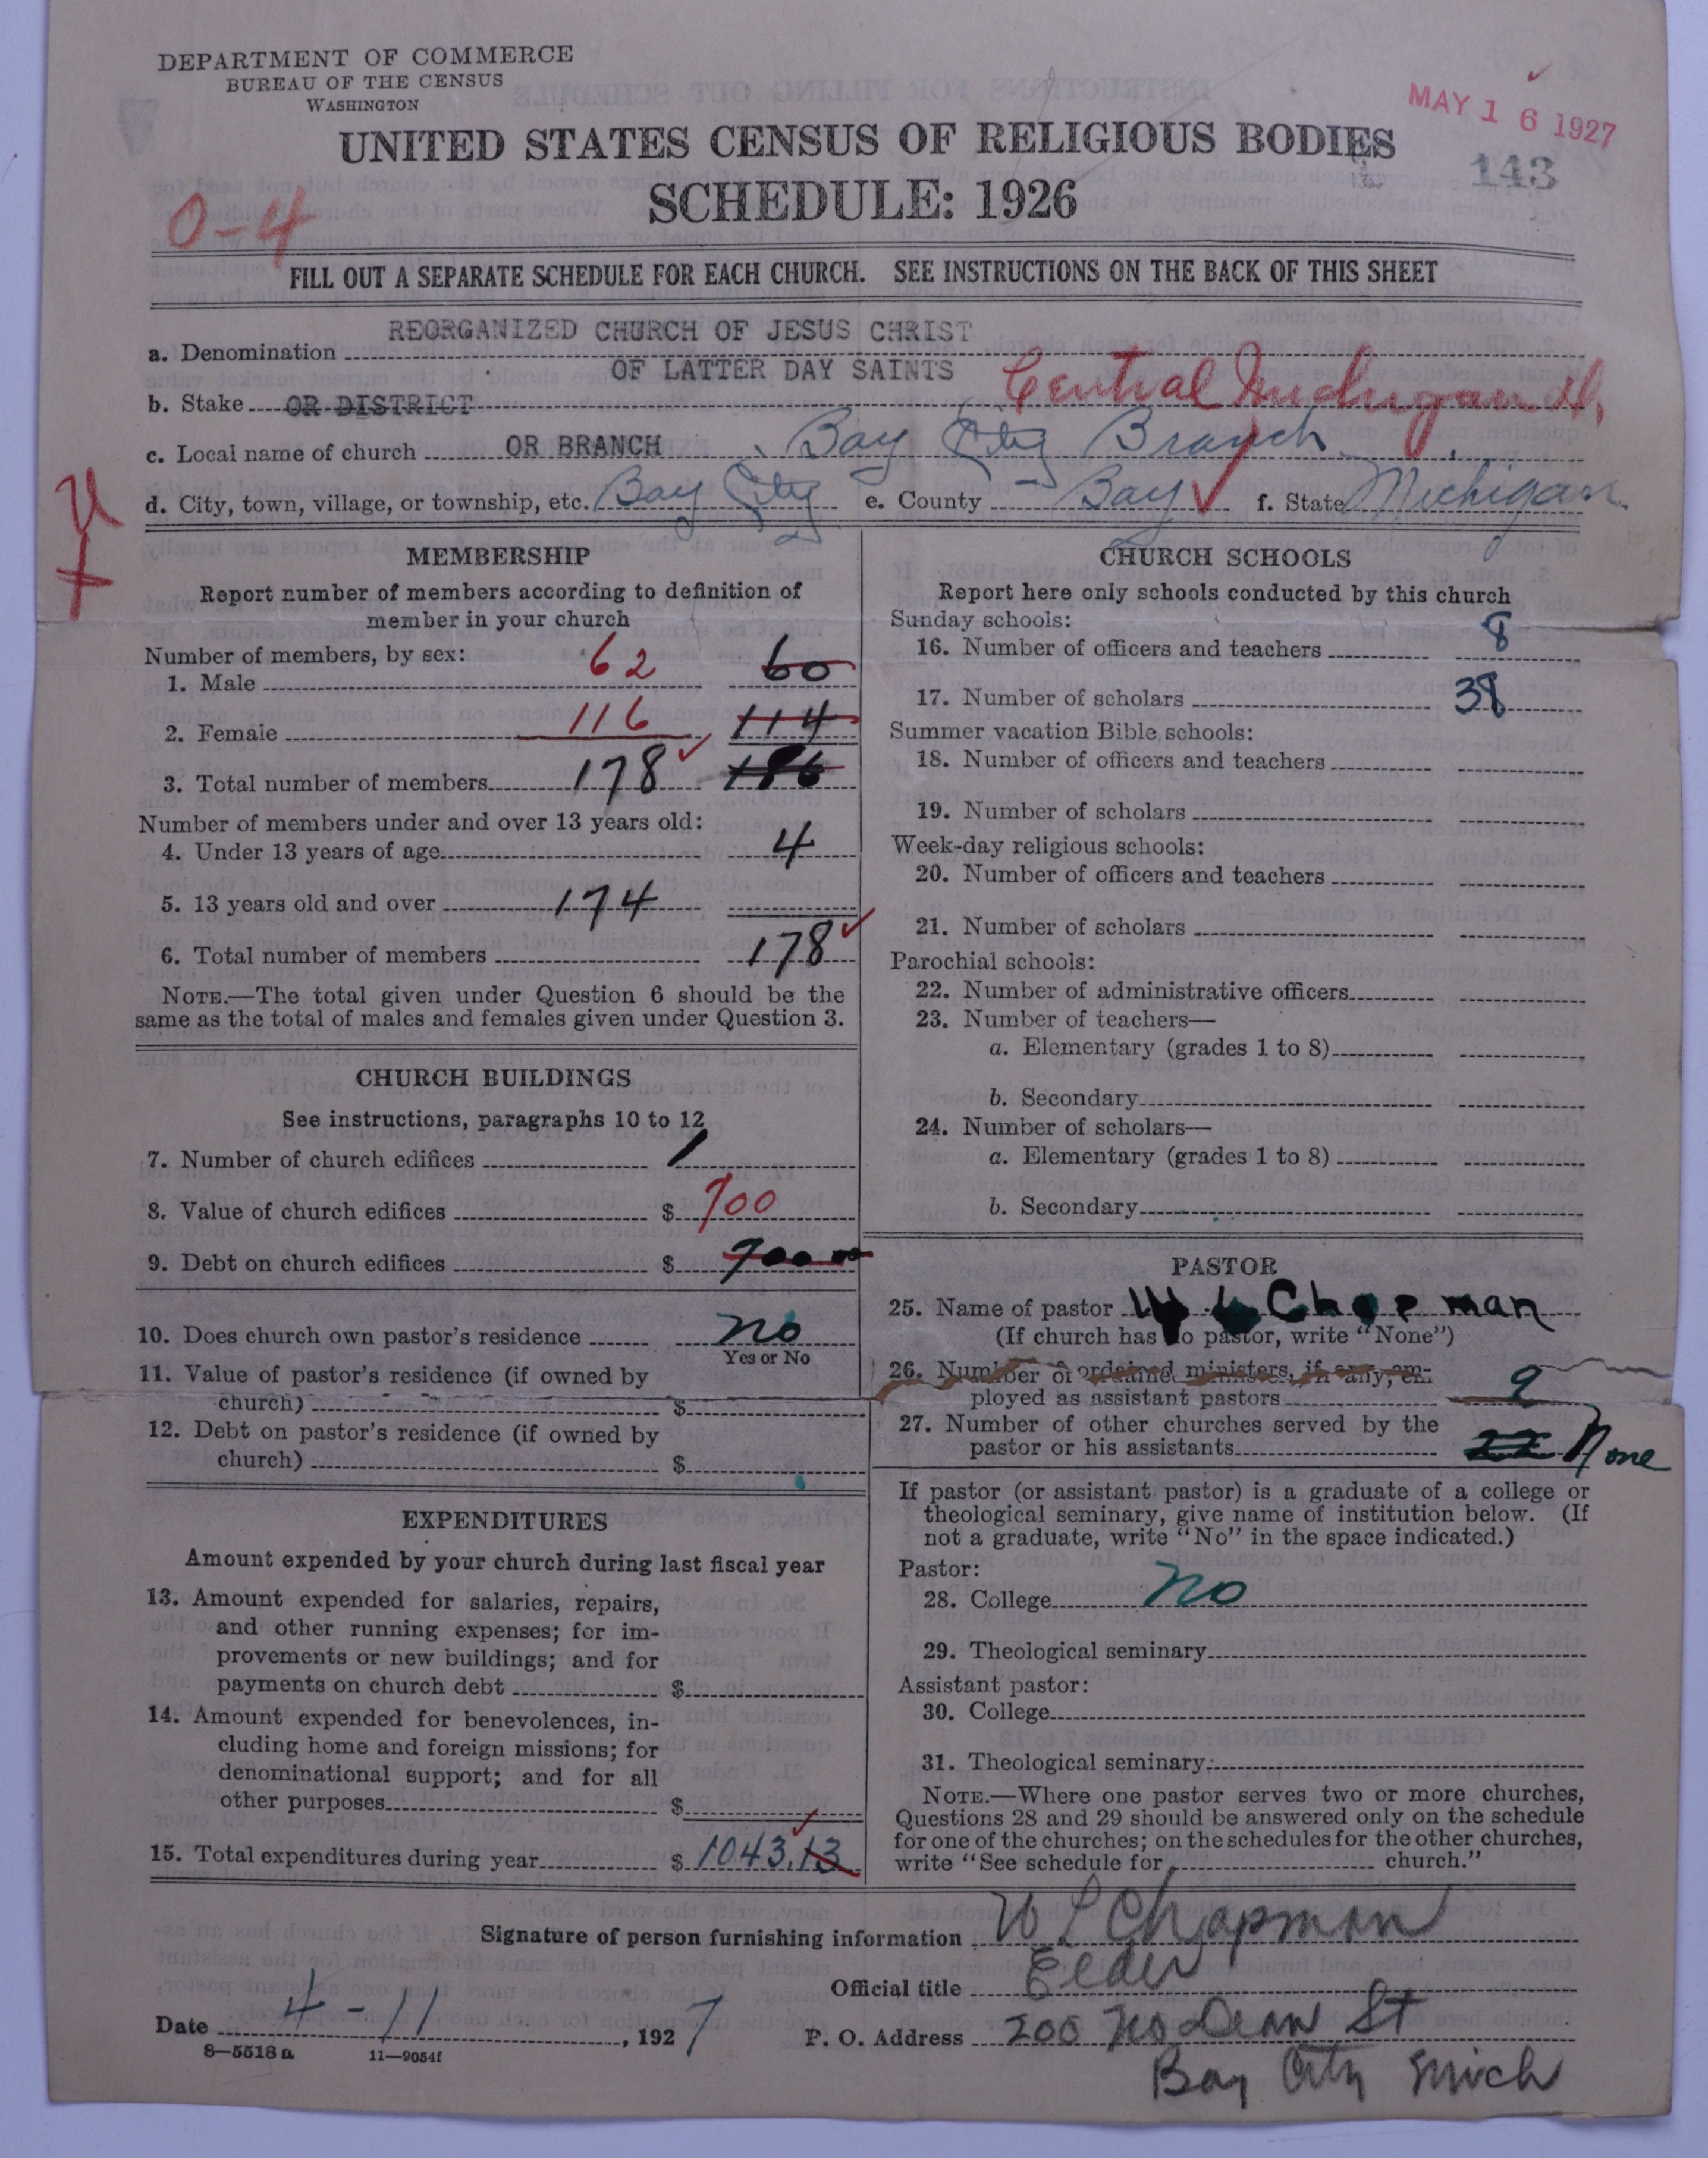 DEPARTMENT OF COMMERCE
BUREAU OF THE CENSUS
WASHINGTON
MAY 16 1927
UNITED STATES CENSUS OF RELIGIOUS BODIES
143
SCHEDULE: 1926
0-4
FILL OUT A SEPARATE SCHEDULE FOR EACH CHURCH. SEE INSTRUCTIONS ON THE BACK OF THIS SHEET
REORGANIZED CHURCH OF JESUS CHRIST
a. Denomination
OF LATTER DAY SAINTS
b. Stake OR DISTRICT Central Michigan
c. Local name of church OR BRANCH Bay City Branch
d. City, town, village, or township, etc. Bay City e. County Bay f. State Michigan
MEMBERSHIP
Report number of members according to definition of
member in your church
Number of members, by sex:
1. Male 62 60
2. Female 116 114
3. Total number of members 178 186
Number of members under and over 13 years old:
4. Under 13 years of age 4
5. 13 years old and over 174
6. Total number of members 178
NOTE.—The total given under Question 6 should be the
same as the total of males and females given under Question 3.
CHURCH BUILDINGS
See instructions, paragraphs 10 to 12
7. Number of church edifices 1
8. Value of church edifices $ 700
9. Debt on church edifices $ 700
10. Does church own pastor's residence no
Yes or No
11. Value of pastor's residence (if owned by
church) $
12. Debt on pastor's residence (if owned by
church) $
EXPENDITURES
Amount expended by your church during last fiscal year
13. Amount expended for salaries, repairs,
and other running expenses; for im-
provements or new buildings; and for
payments on church debt $
14. Amount expended for benevolences, in-
cluding home and foreign missions; for
denominational support; and for all
other purposes $
15. Total expenditures during year $ 1043.13
CHURCH SCHOOLS
Report here only schools conducted by this church
Sunday schools:
16. Number of officers and teachers 8
17. Number of scholars 38
Summer vacation Bible schools:
18. Number of officers and teachers
19. Number of scholars
Week-day religious schools:
20. Number of officers and teachers
21. Number of scholars
Parochial schools:
22. Number of administrative officers
23. Number of teachers—
a. Elementary (grades 1 to 8)
b. Secondary
24. Number of scholars—
a. Elementary (grades 1 to 8)
b. Secondary
PASTOR
25. Name of pastor W L Chapman
(If church has no pastor, write "None")
26. Number of ordained ministers, if any, em-
ployed as assistant pastors 9
27. Number of other churches served by the
pastor or his assistants None
If pastor (or assistant pastor) is a graduate of a college or
theological seminary, give name of institution below. (If
not a graduate, write "No" in the space indicated.)
Pastor:
28. College no
29. Theological seminary
Assistant pastor:
30. College
31. Theological seminary
NOTE.—Where one pastor serves two or more churches,
Questions 28 and 29 should be answered only on the schedule
for one of the churches; on the schedules for the other churches,
write "See schedule for church."
Signature of person furnishing information W L Chapman
Official title Elder
Date 4-11, 1927
P. O. Address 200 No Dean St
Bay City Mich
8-5518a 11-9054f